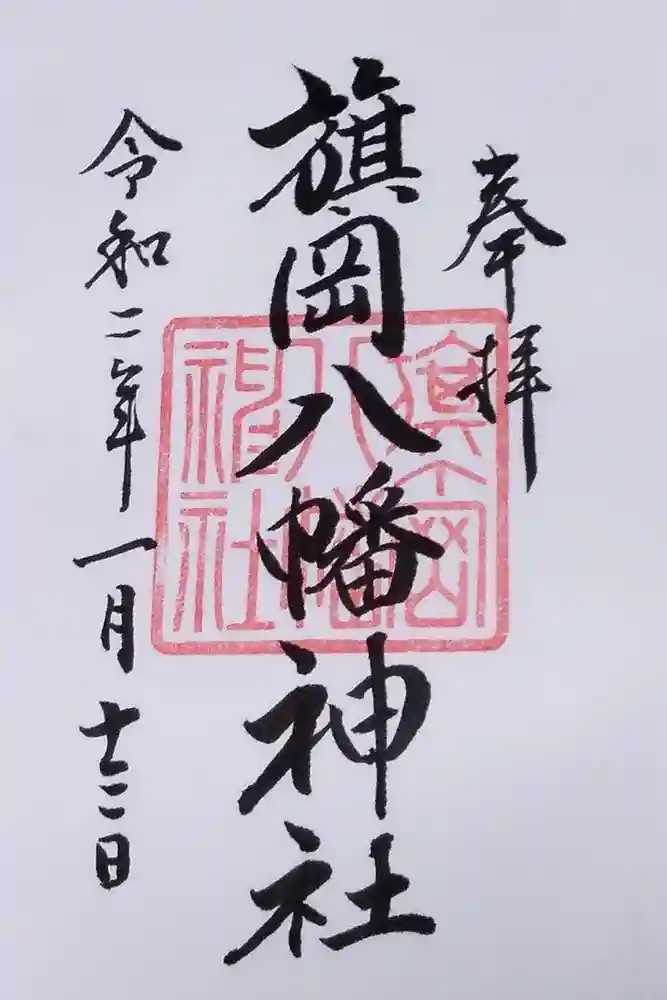 奉拝
旗岡八幡神社
旗岡八幡神社
令和二年一月十二日